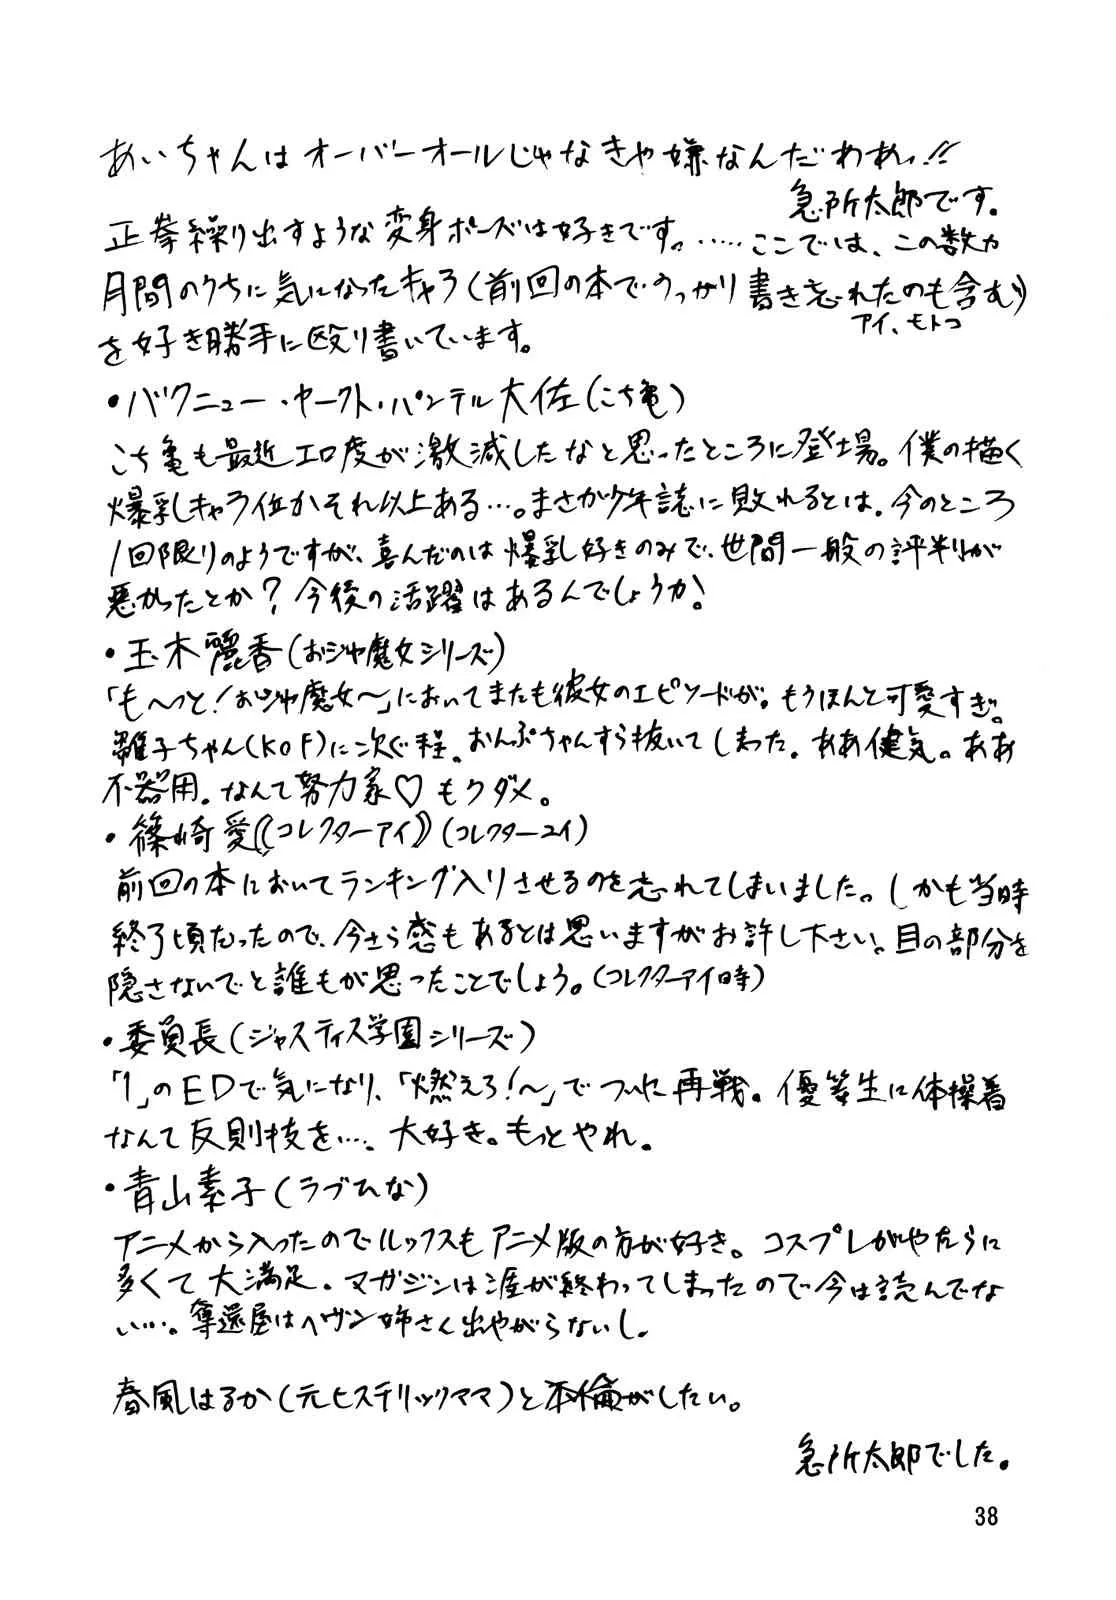 あいちゃんはオーバーオールじゃなきゃ嫌なんだわあっ!!
急所太郎です。
正拳繰り出すような変身ポーズは好きです。.....ここでは、この数カ
月間のうちに気になったキャラ(前回の本でうっかり書き忘れたのも含む)
アイ、モトコ
を好き勝手に殴り書いています。
・バクニュー・ヤークト・パンテル大佐(こち亀)
こち亀も最近エロ度が激減したなと思ったところに登場。僕の描く
爆乳キャラ位かそれ以上ある…。まさか少年誌に敗れるとは。今のところ
1回限りのようですが、喜んだのは爆乳好きのみで、世間一般の評判が
悪かったとか?今後の活躍はあるんでしょうか!
・玉木麗香(おジャ魔女シリーズ)
「も〜っと!おジャ魔女〜」においてまたも彼女のエピソードが。もうほんと可愛すぎ。
雛子ちゃん(KOF)に次ぐ程。おんぷちゃんすら抜いてしまった。ああ健気。ああ
不器用。なんて努力家♡もうダメ。
・篠崎愛(《コレクターアイ》)(コレクターユイ)
前回の本においてランキング入りさせるのを忘れてしまいました。しかも当時
終了頃だったので、今さら感もあるとは思いますがお許し下さい。目の部分を
隠さないでと誰もが思ったことでしょう。(コレクターアイ時)
・委員長(ジャスティス学園シリーズ)
「1」のEDで気になり、「燃えろ!〜」でついに再戦。優等生に体操着
なんて反則技を…、大好き。もっとやれ。
・青山素子(ラブひな)
アニメから入ったのでルックスもアニメ版の方が好き。コスプレがやたらに
多くて大満足。マガジンは涯が終わってしまったので今は読んでな
い…。奪還屋はヘヴン姉さん出やがらないし。
春風はるか(元ヒステリックママ)と不倫がしたい。
急所太郎でした。
38